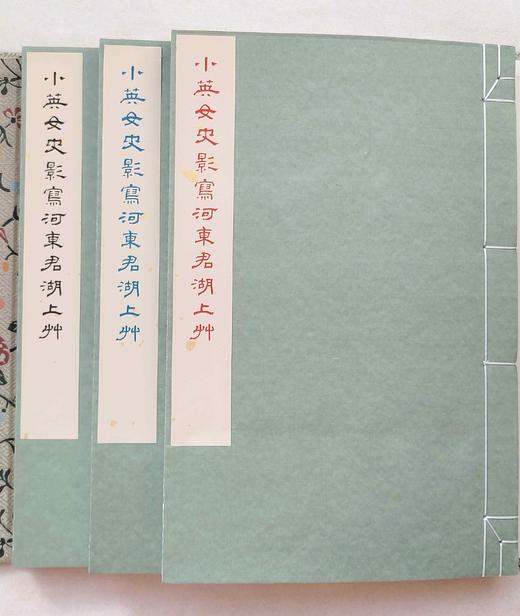 小英女史影寫河東君湖上艸
小英女史影寫河東君湖上艸
小英女史影寫河東君湖上艸